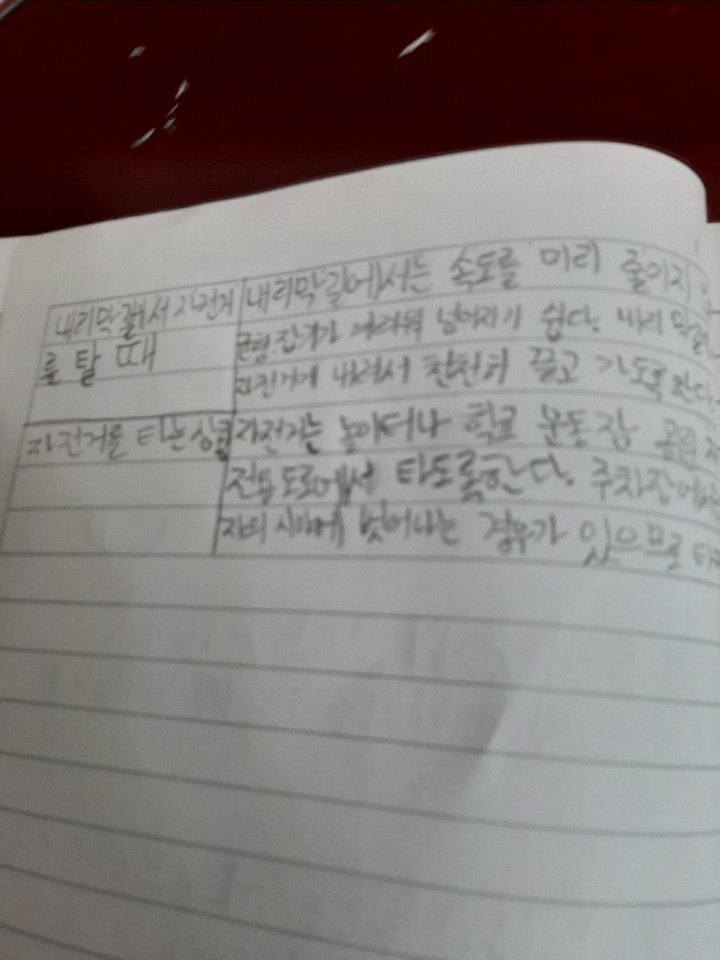 내리막길에서 자전거
를 탈 때
내리막길에서는 속도를 미리 줄이지
균형잡기가 어려워 넘어지기 쉽다. 내리막길
자전거에 내려서 천천히 끌고 가도록 한다.
자전거를 타는
자전거는 놀이터나 학교 운동장 공원
전용도로에서 타도록한다. 주차장에
시야에 벗어나는 경우가 있으므로